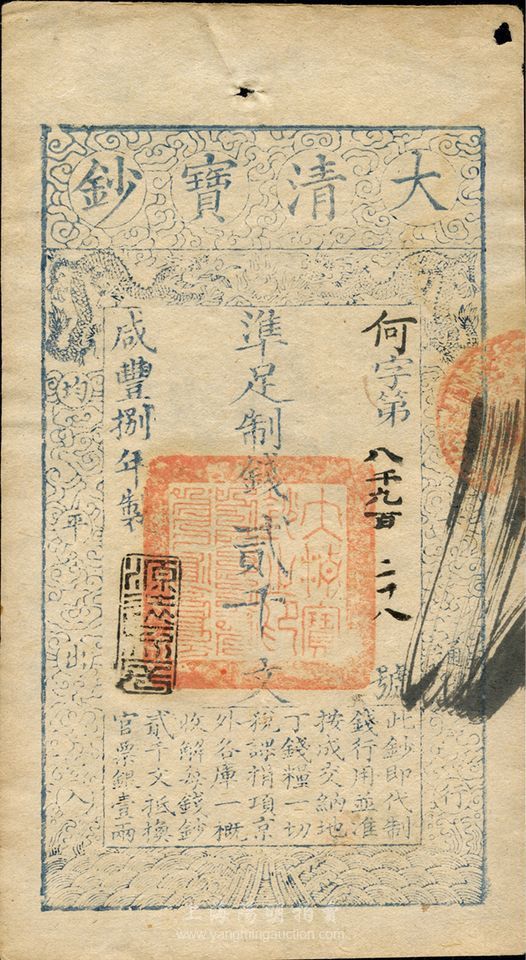 大清寶鈔
何字第八千九百二十八號
準足制錢貳千文
咸豐捌年製
均平出入
行
此鈔即代制
錢行用並准
按成交納地
丁錢糧一切
稅課捐項京
外各庫一概
收解每錢鈔
貳千文抵換
官票銀壹兩
大清寶
上海阳明拍卖
www.yangmingauction.com